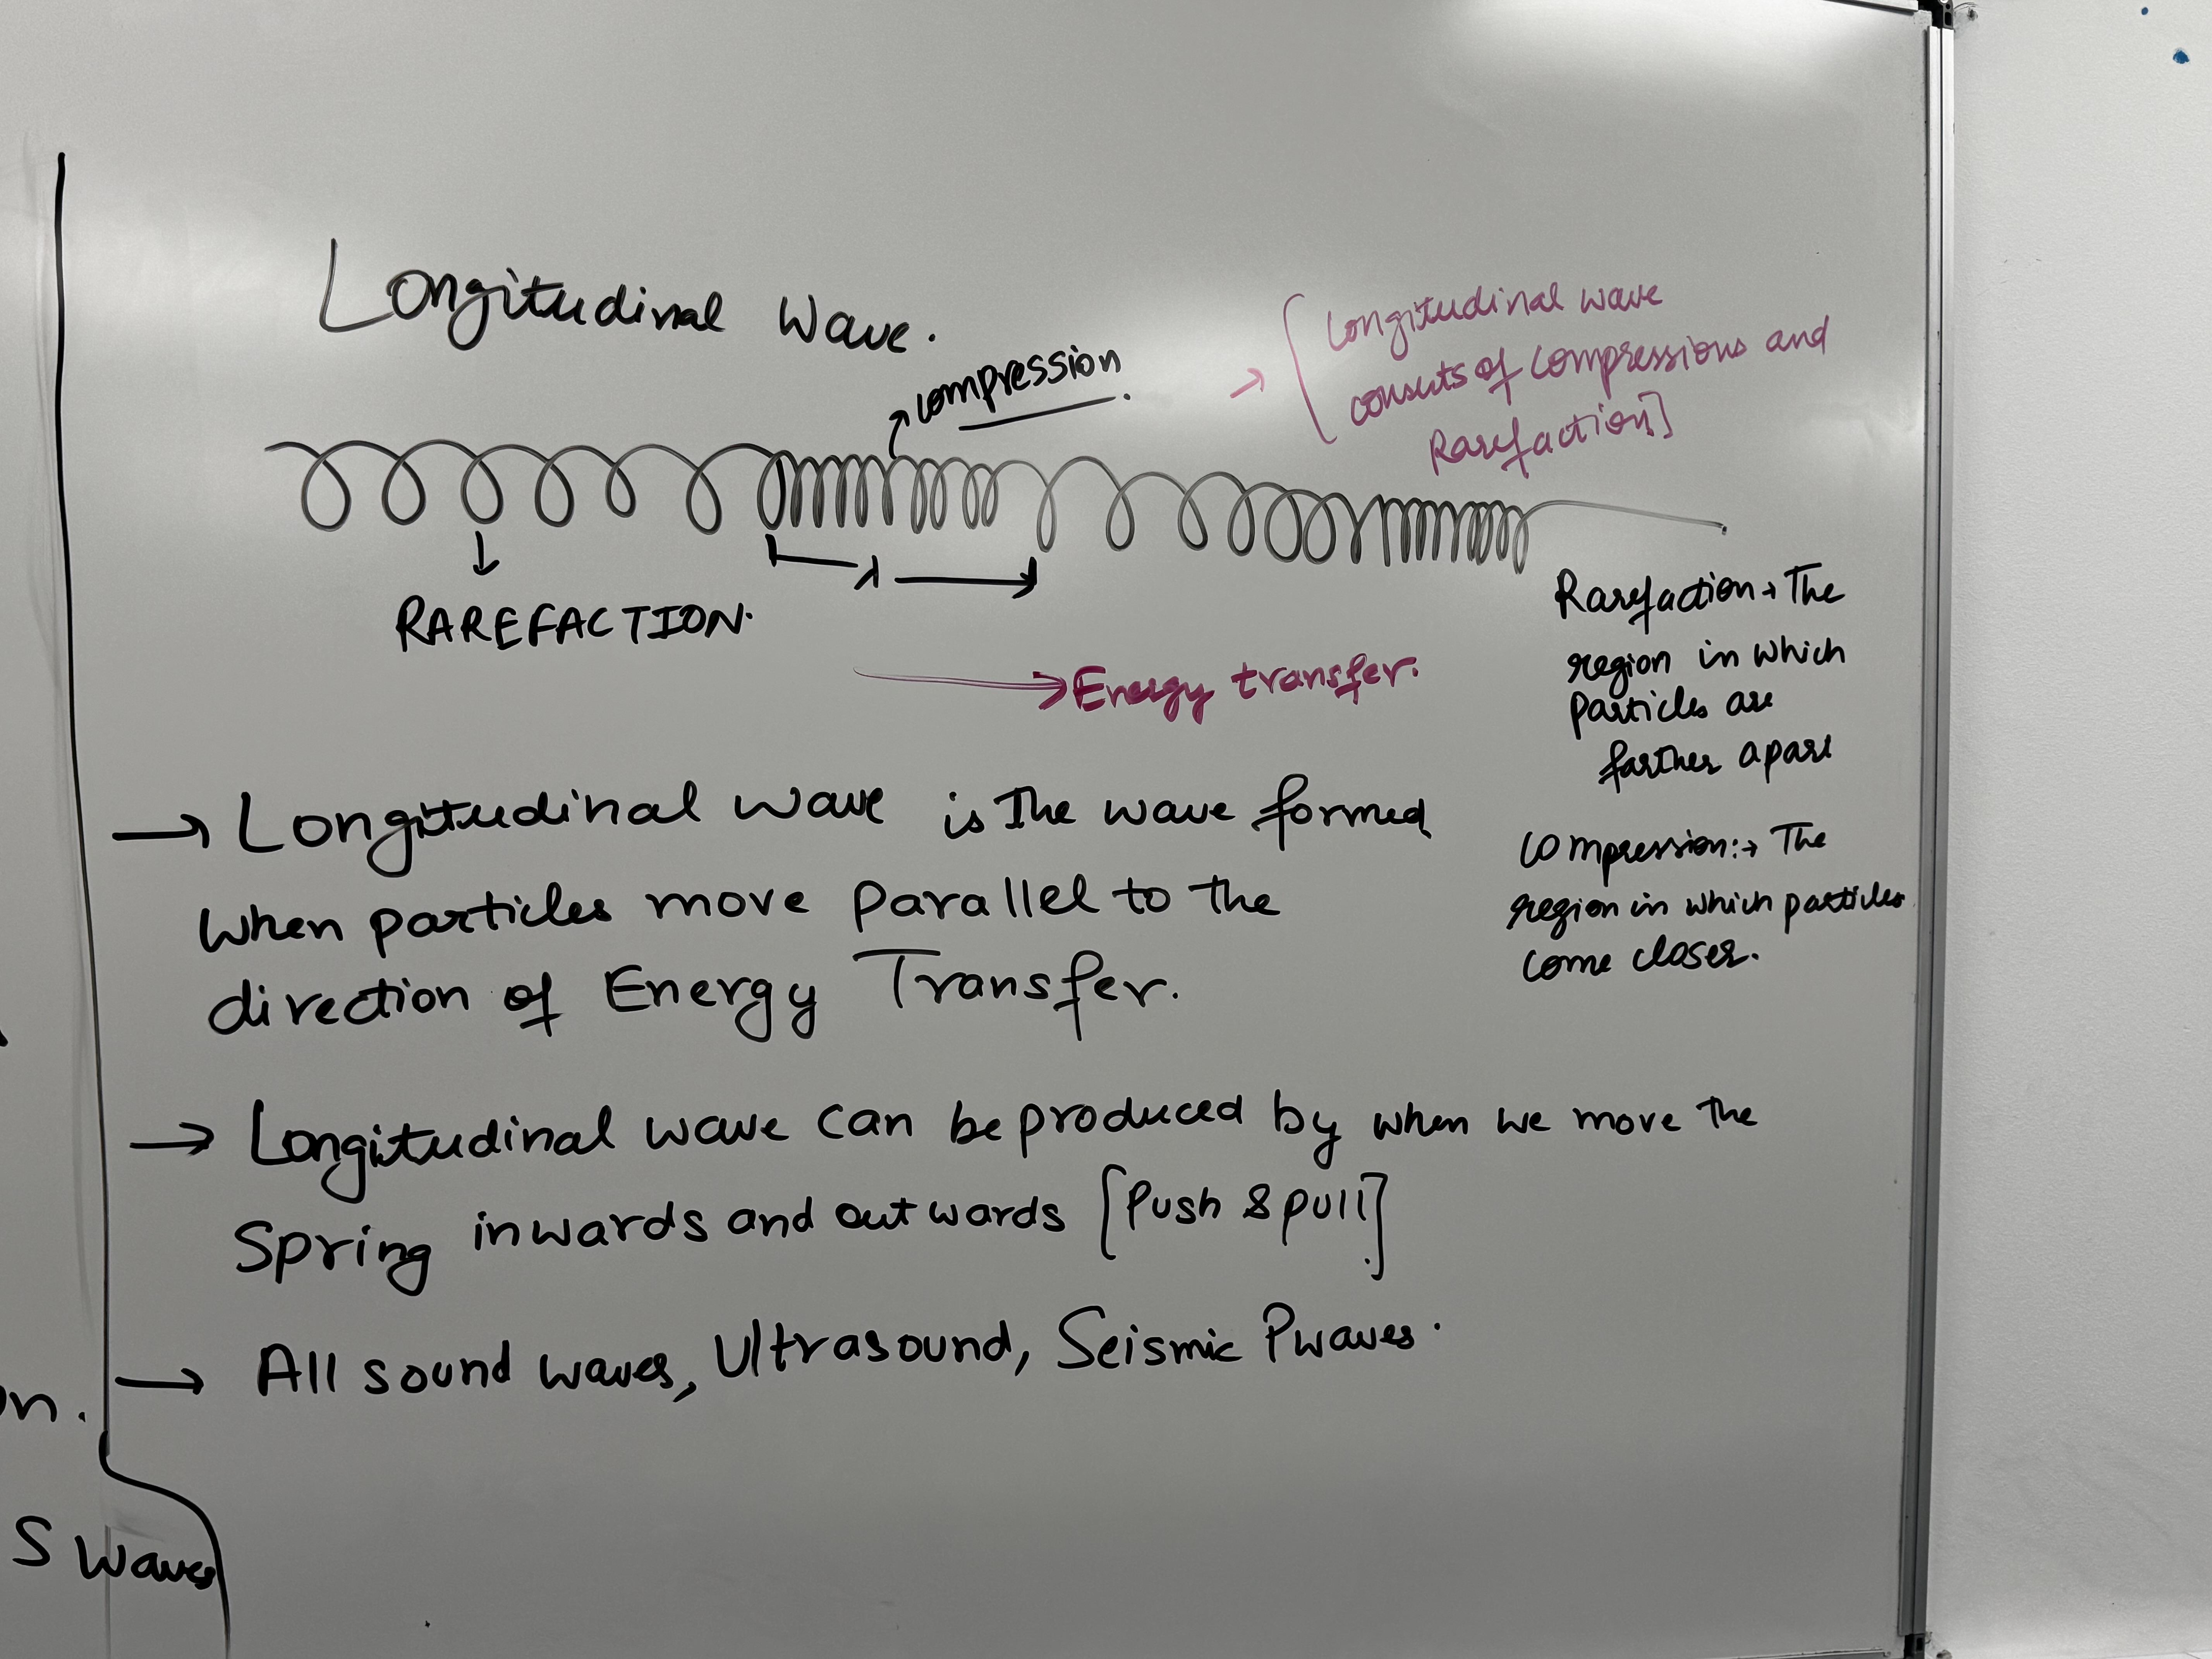 Longitudinal Wave.
compression
→ [Longitudinal wave
consists of compressions and
Rarefaction]
λ
RAREFACTION.
→ Energy transfer.
Rarefaction → The
region in which
particles are
farther apart
compression: → The
region in which particles
come closer.
→ Longitudinal wave is The wave formed
when particles move parallel to the
direction of Energy Transfer.
→ Longitudinal wave can be produced by when we move the
Spring inwards and outwards [Push & pull]
→ All sound waves, Ultrasound, Seismic P waves.
on.
S waves